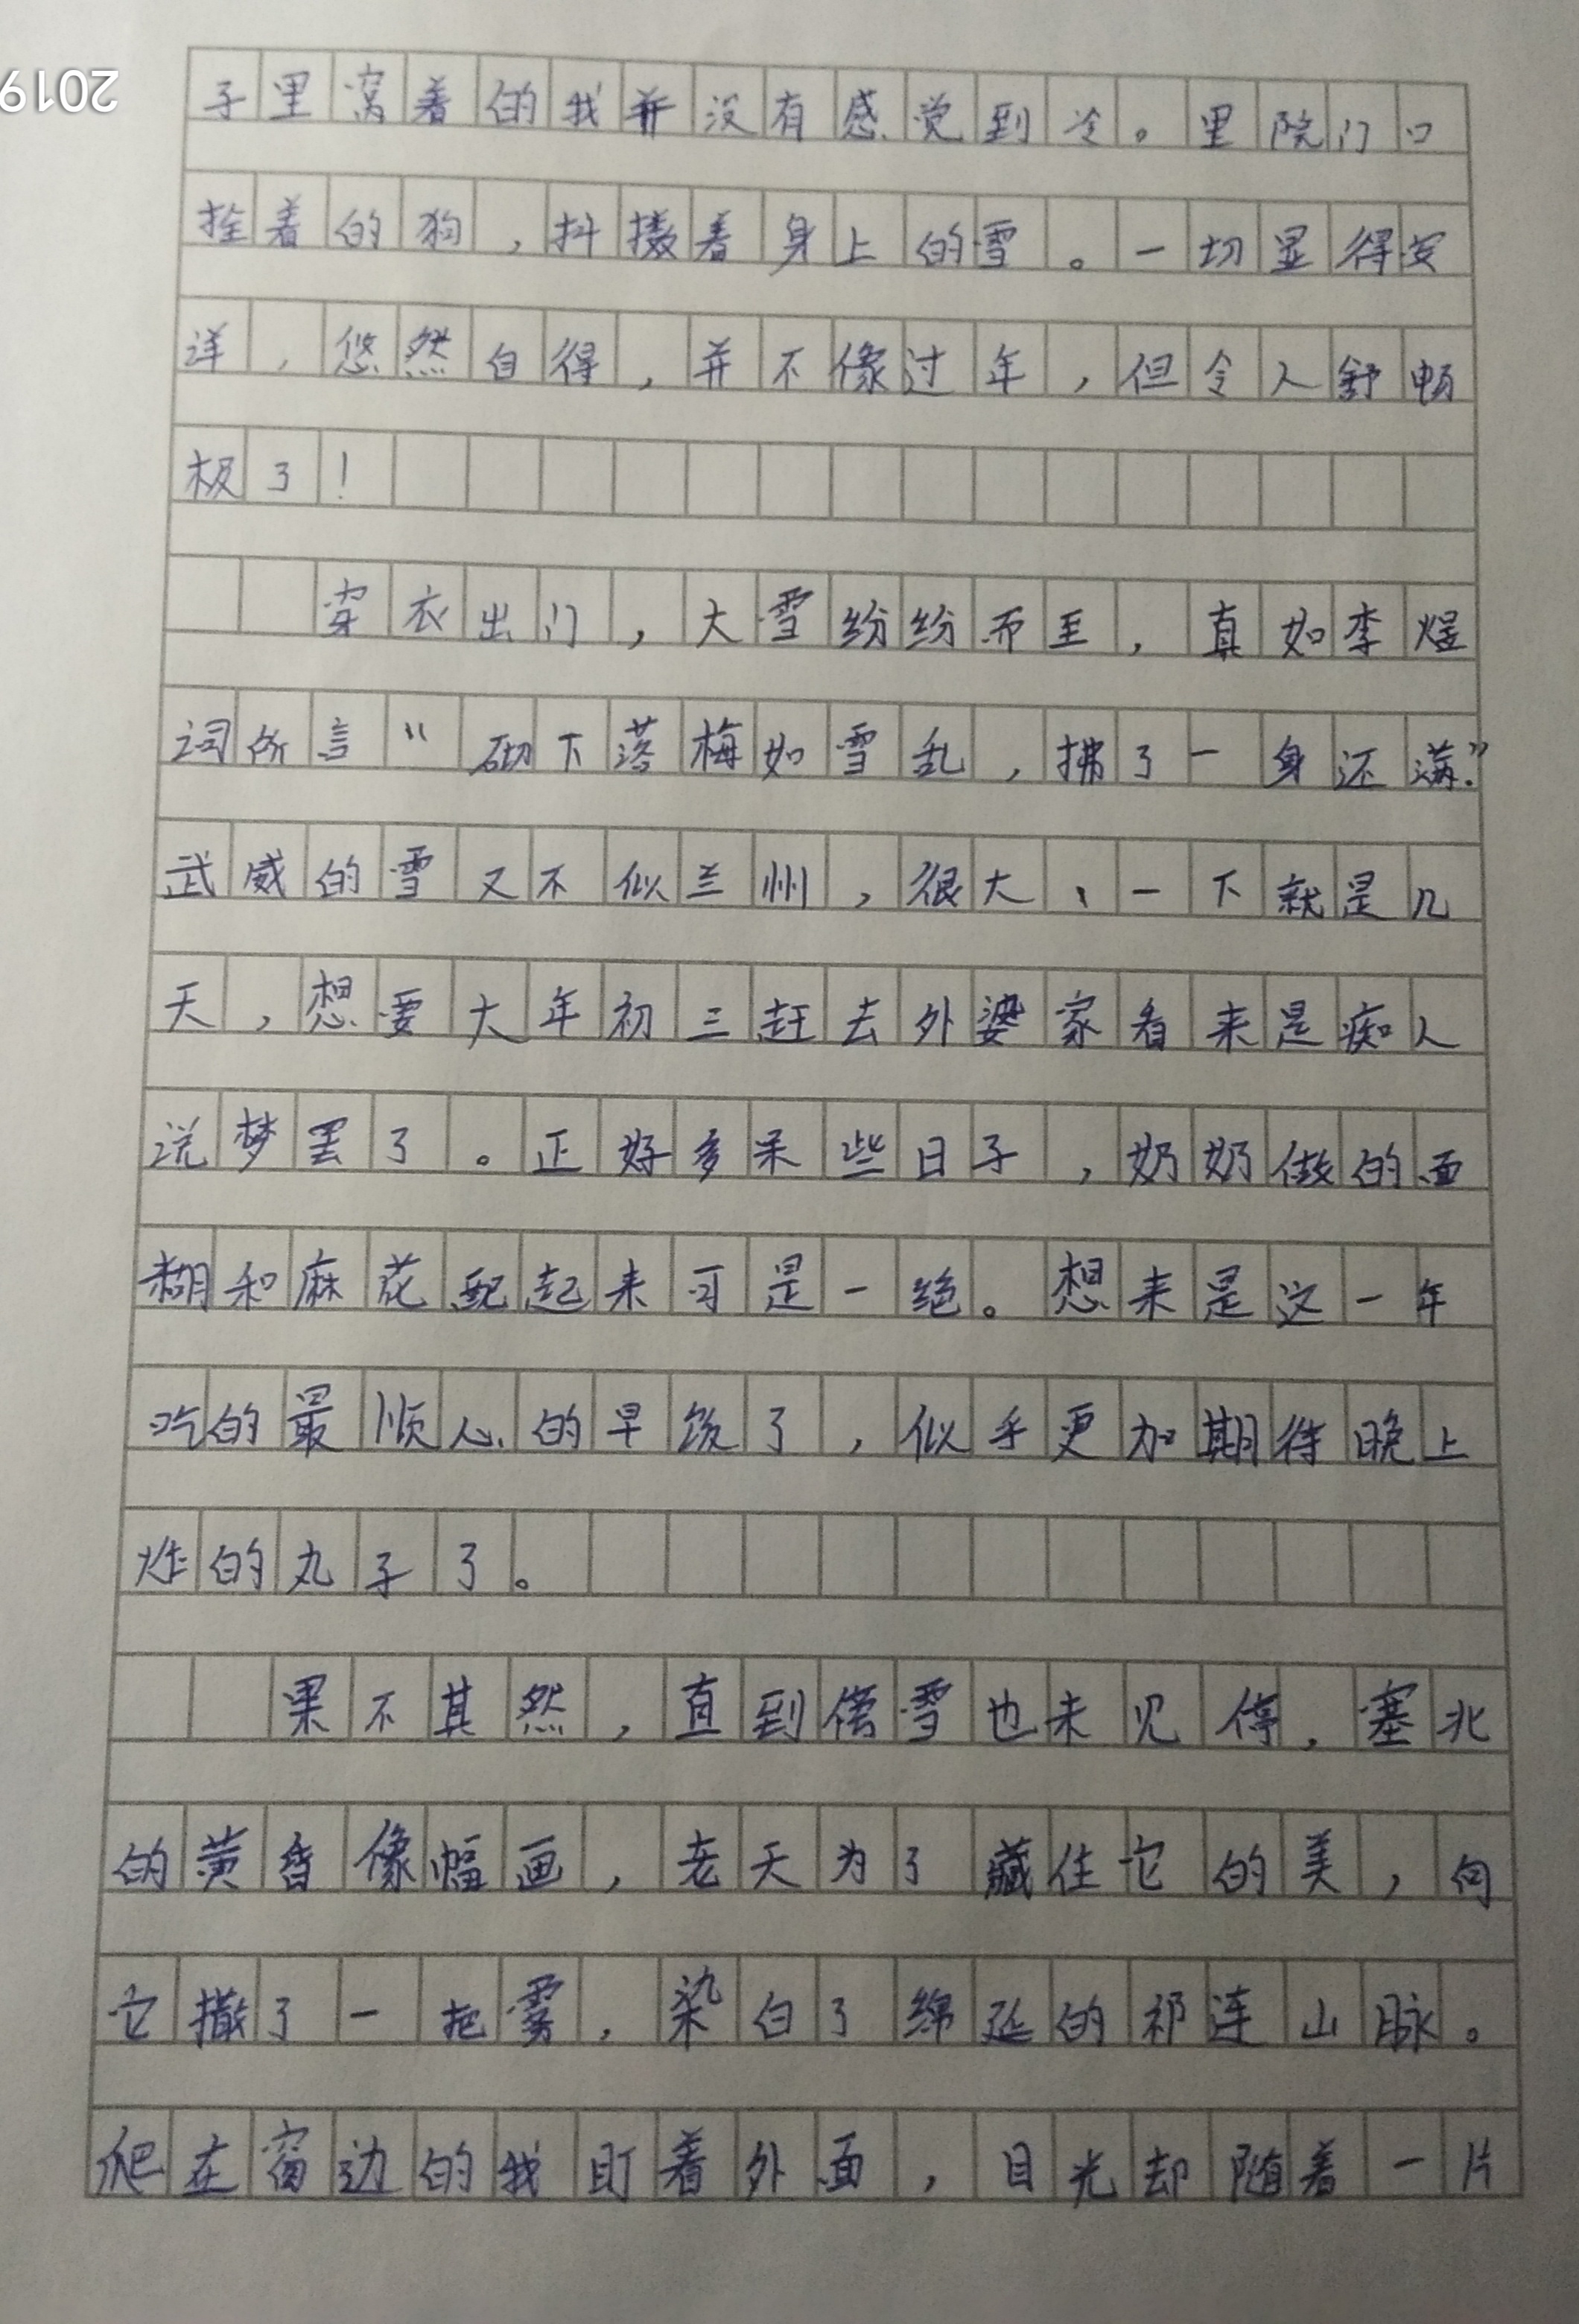 2019
子里窝着的我并没有感觉到冷。里院门口
拴着的狗，抖擞着身上的雪。一切显得安
详，悠然自得，并不像过年，但令人舒畅
极了！
穿衣出门，大雪纷纷而至，真如李煜
词所言“砌下落梅如雪乱，拂了一身还满.”
武威的雪又不似兰州，很大、一下就是几
天，想要大年初三赶去外婆家看来是痴人
说梦罢了。正好多呆些日子，奶奶做的面
糊和麻花配起来可是一绝。想来是这一年
吃的最顺心的早饭了，似乎更加期待晚上
炸的丸子了。
果不其然，直到傍雪也未见停，塞北
的黄昏像幅画，老天为了藏住它的美，向
它撒了一把雾，染白了绵延的祁连山脉。
爬在窗边的我盯着外面，目光却随着一片